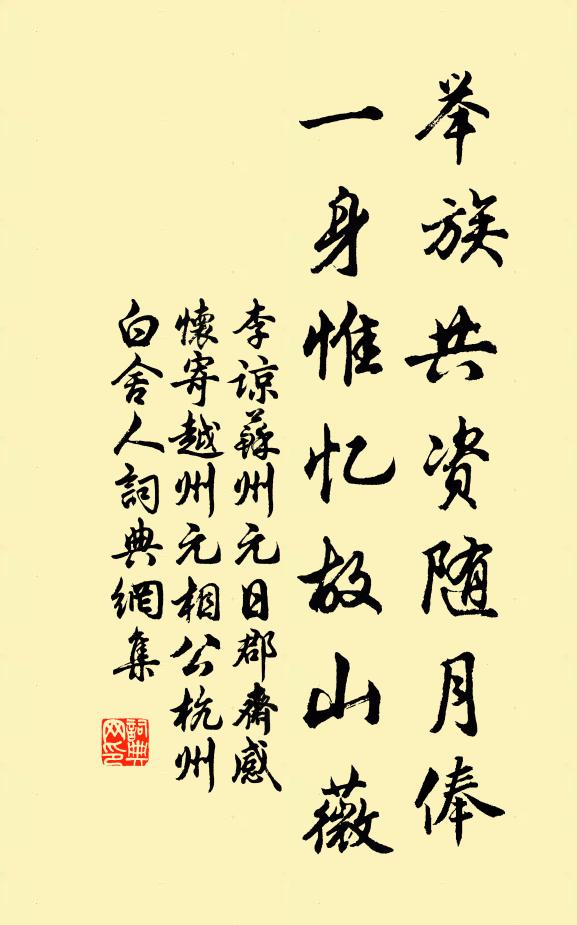 举族共资随月俸
一身惟忆故山薇
李谅蘇州元日郡齋感
懷寄越州元相公杭州
白舍人詞典網集
詞典
网印